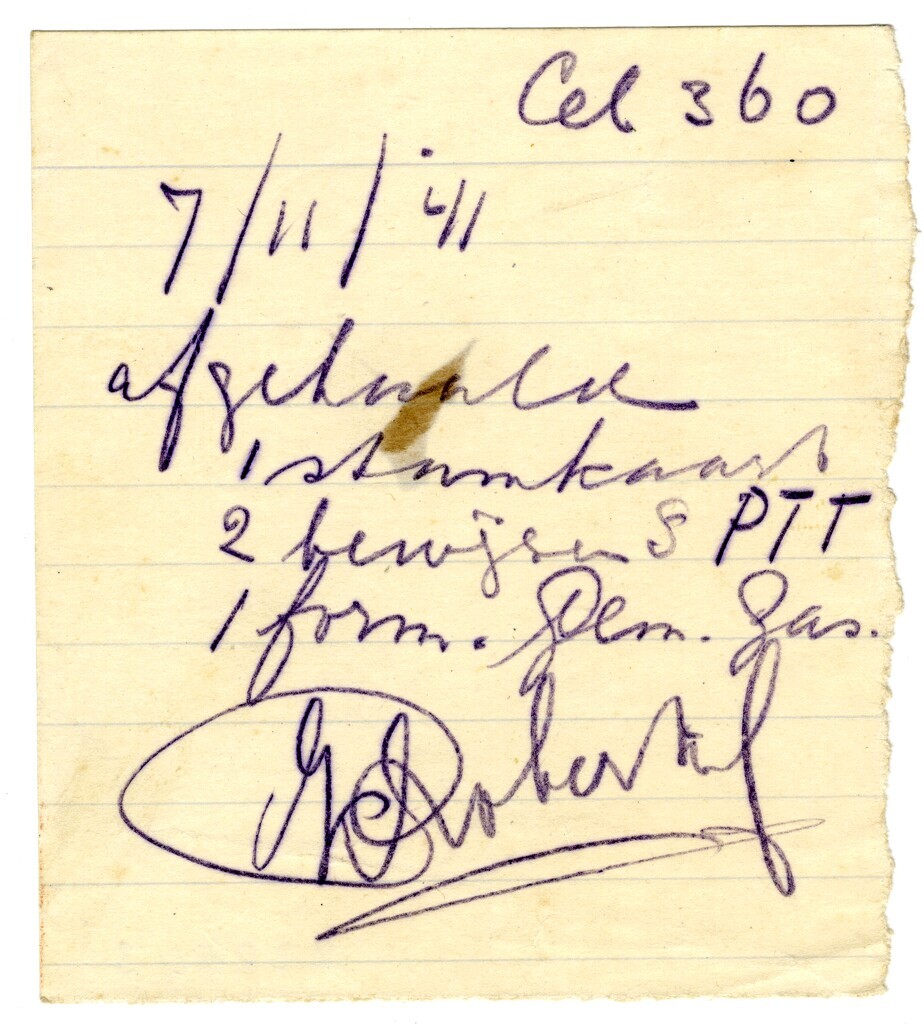 Cel 360
7/11/'41
afgehaald
1 stamkaart
2 bewijzen S PTT
1 form. Gem. Gas.